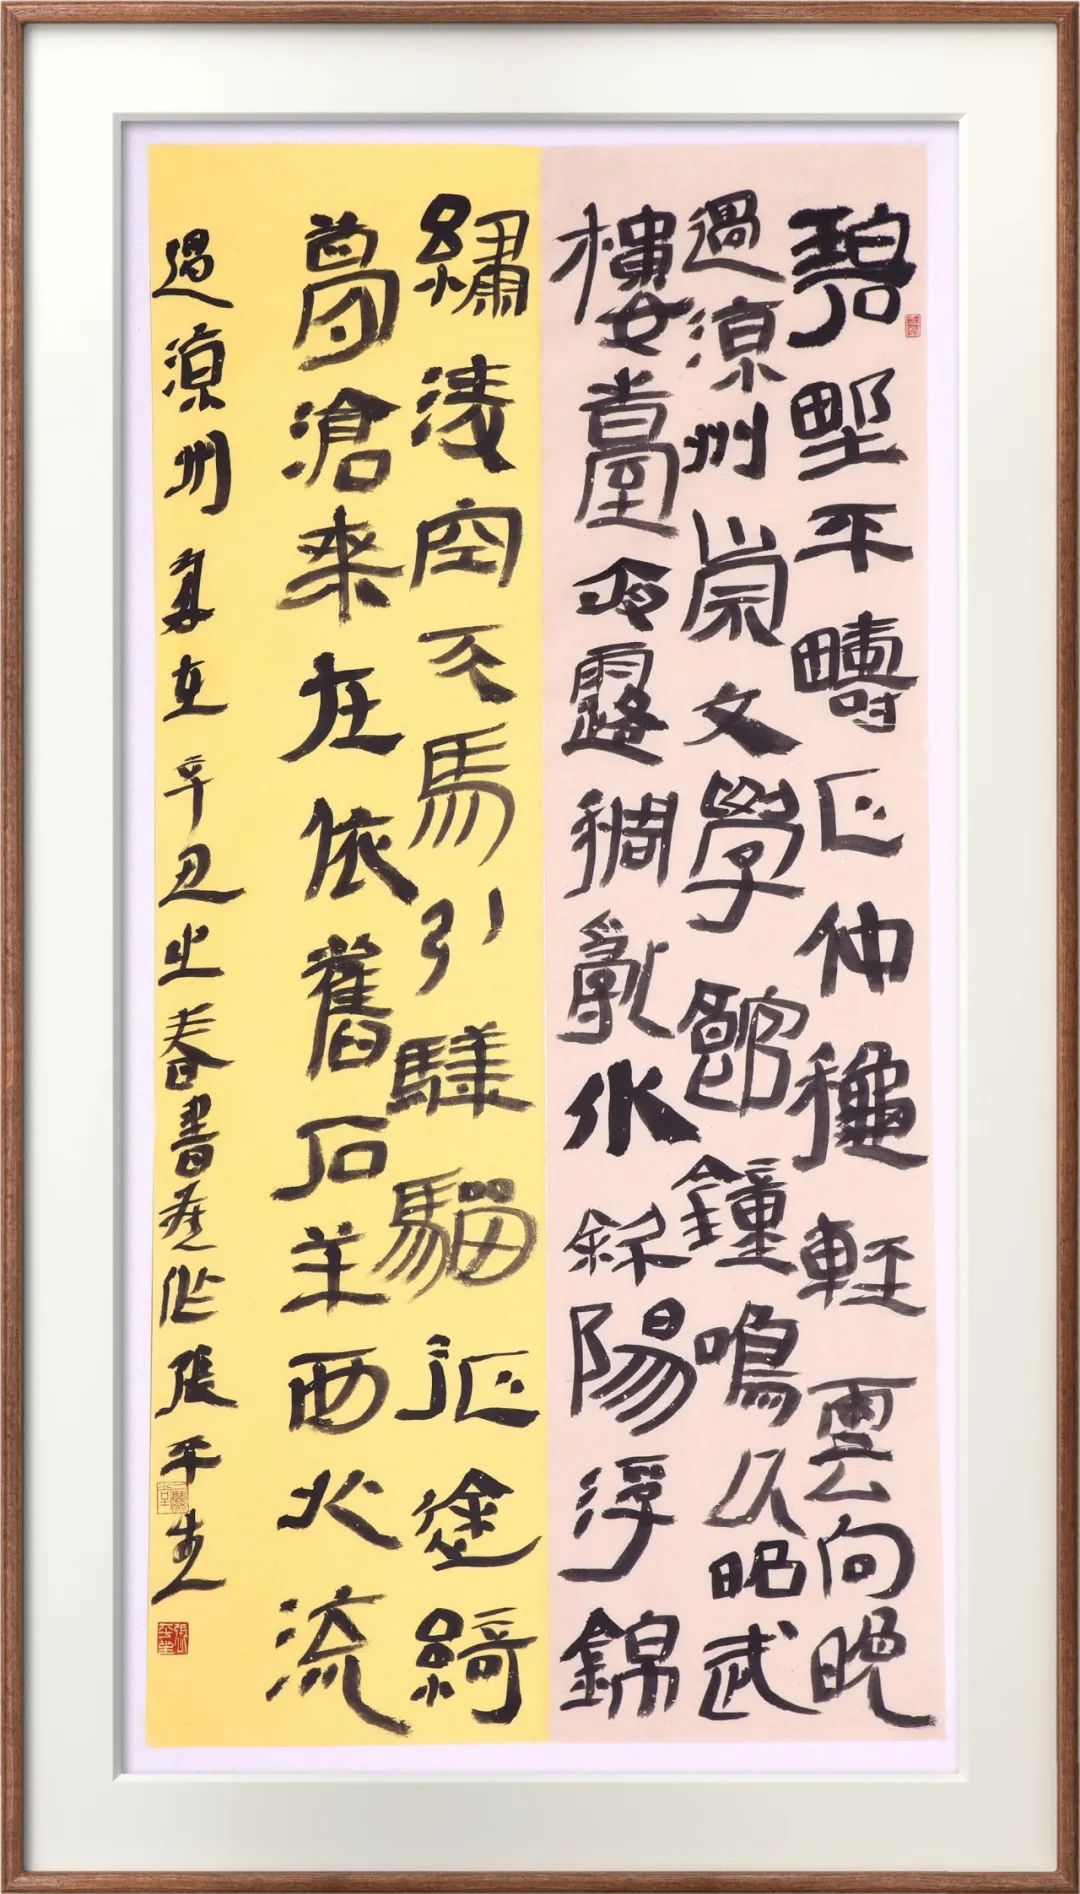 碧野平疇正仲穐輕雲向晚
過涼州崇文學館鐘鳴久昭武
樓臺夜露稠亂水斜陽浮錦
繡淩空天馬引驊騮征塗綺
夢滄桑在依舊石羊西北流
過涼州 辛丑之春書舊作張平生